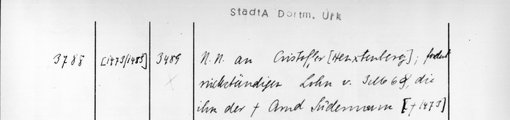 StadtA Dortm. Urk
3788 [1473/1485] 3489 N.N. an Cristoffer [Henxtenberg]; fordert
x rückständigen Lohn v. 66 , die
ihn der + Arnd Südermann [+1473]